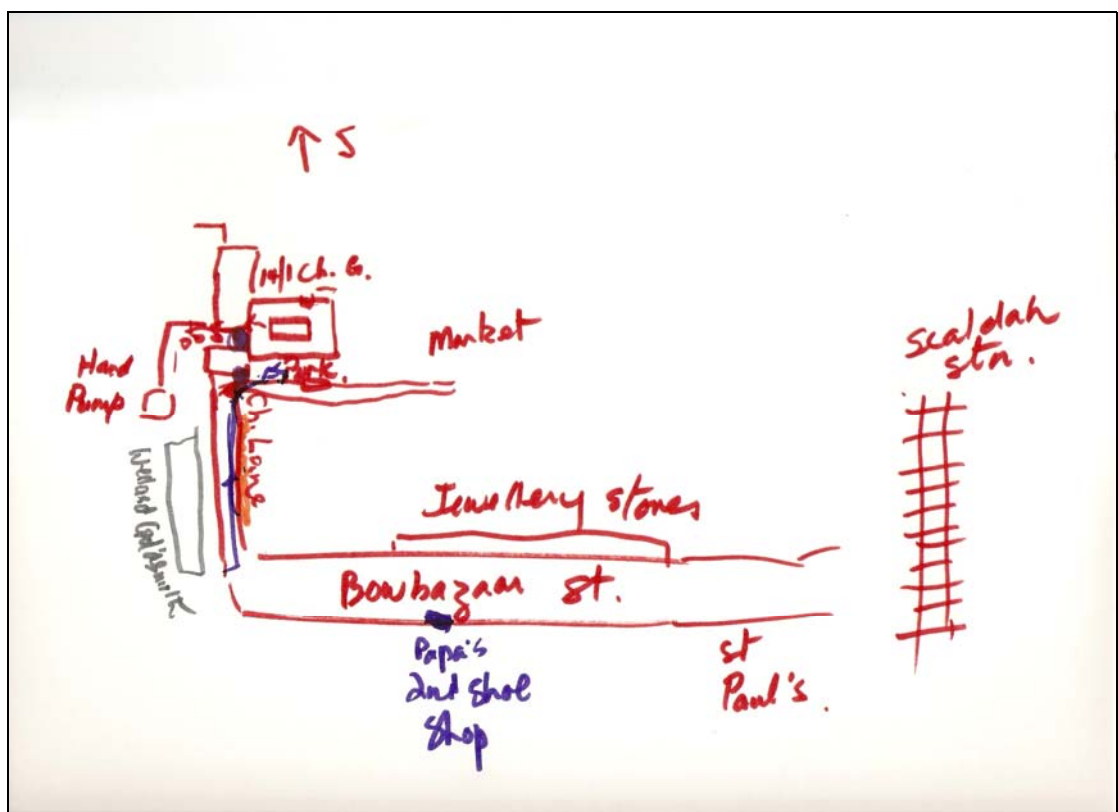 ↑ S
14/1 Ch. G.
Market
Scaldah
stn.
Hand
Pump
Park.
Ch. Lane
Jewellery stores
Bowbazaar St.
Papa's
2nd Shoe
Shop
St
Paul's.